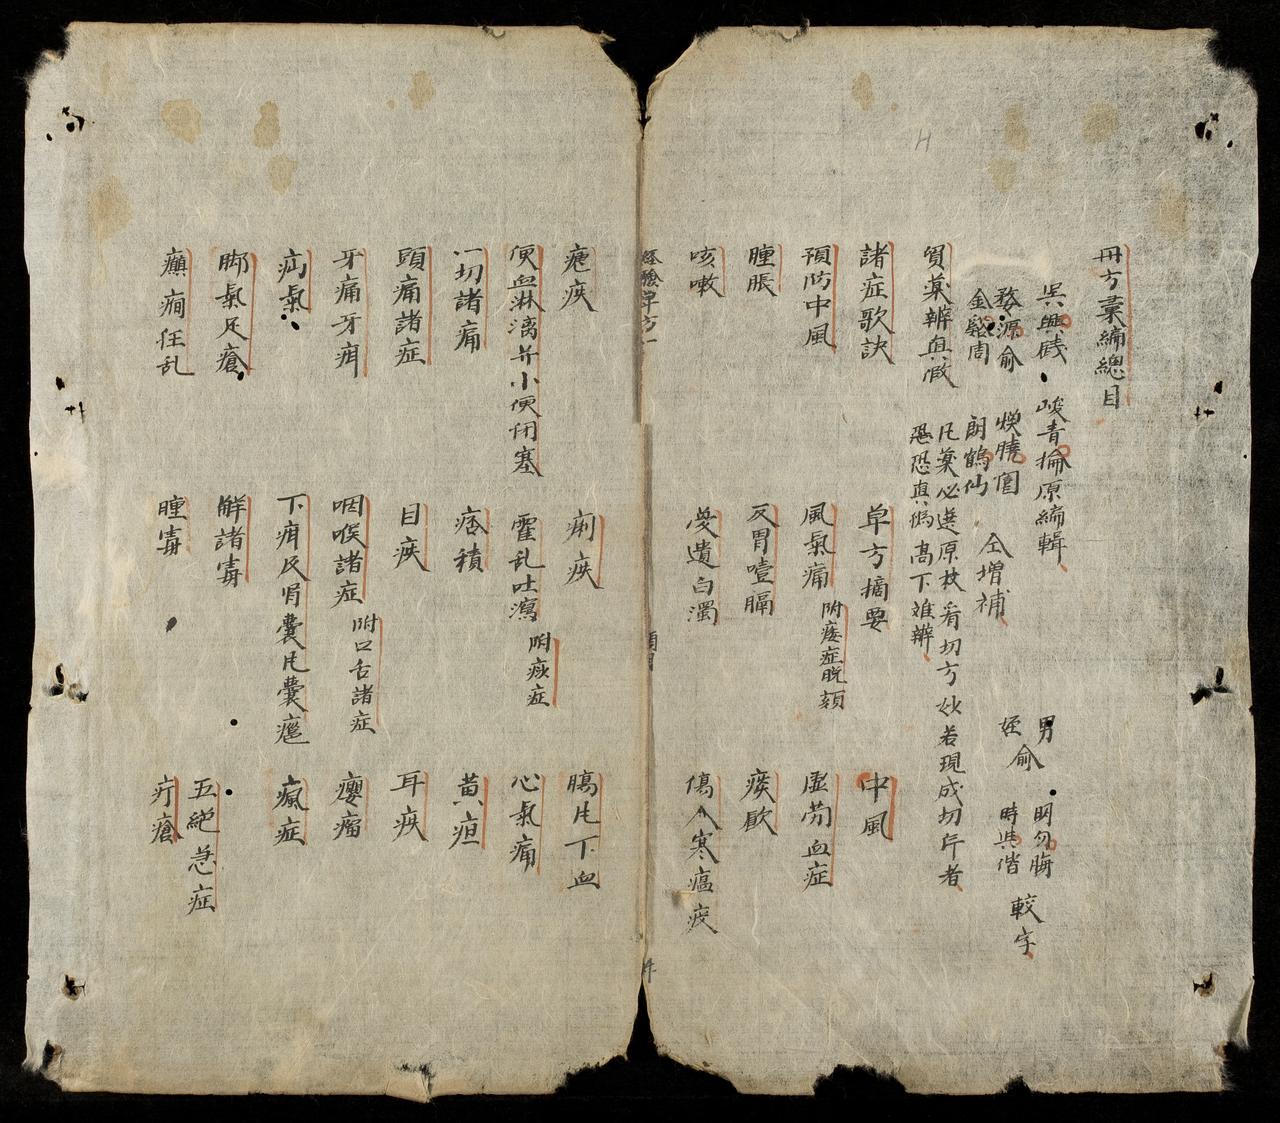 丹方彙編總目
吳興錢　峻青掄原編輯
婺源俞　煥曉園
金谿周　朗鶴仙
仝增補
男　明勿晦
姪俞　時與偕
較字
買藥辨真假
凡藥必選原枝看切方妙若現成切斤者
恐真偽高下难辨
諸症歌訣　单方摘要　中風
預防中風　風氣痛　附痿症脱頦　虛勞血症
腫脹　反胃噎膈　痰厥
咳嗽　夢遺白濁　傷人寒瘟疫
經驗单方一
瘧疾　痢疾　腸片下血
便血淋漓并小便闭塞　霍乱吐瀉　附痰症　心氣痛
一切諸痛　痞積　黄疸
頭痛諸症　目疾　耳疾
牙痛牙疳　咽喉諸症　附口舌諸症　癭瘤
疝氣　下疳及腎囊片囊癰　瘋症
脚氣足瘡　解諸毒　五絶急症
癲癇狂乱　腫毒　疔瘡